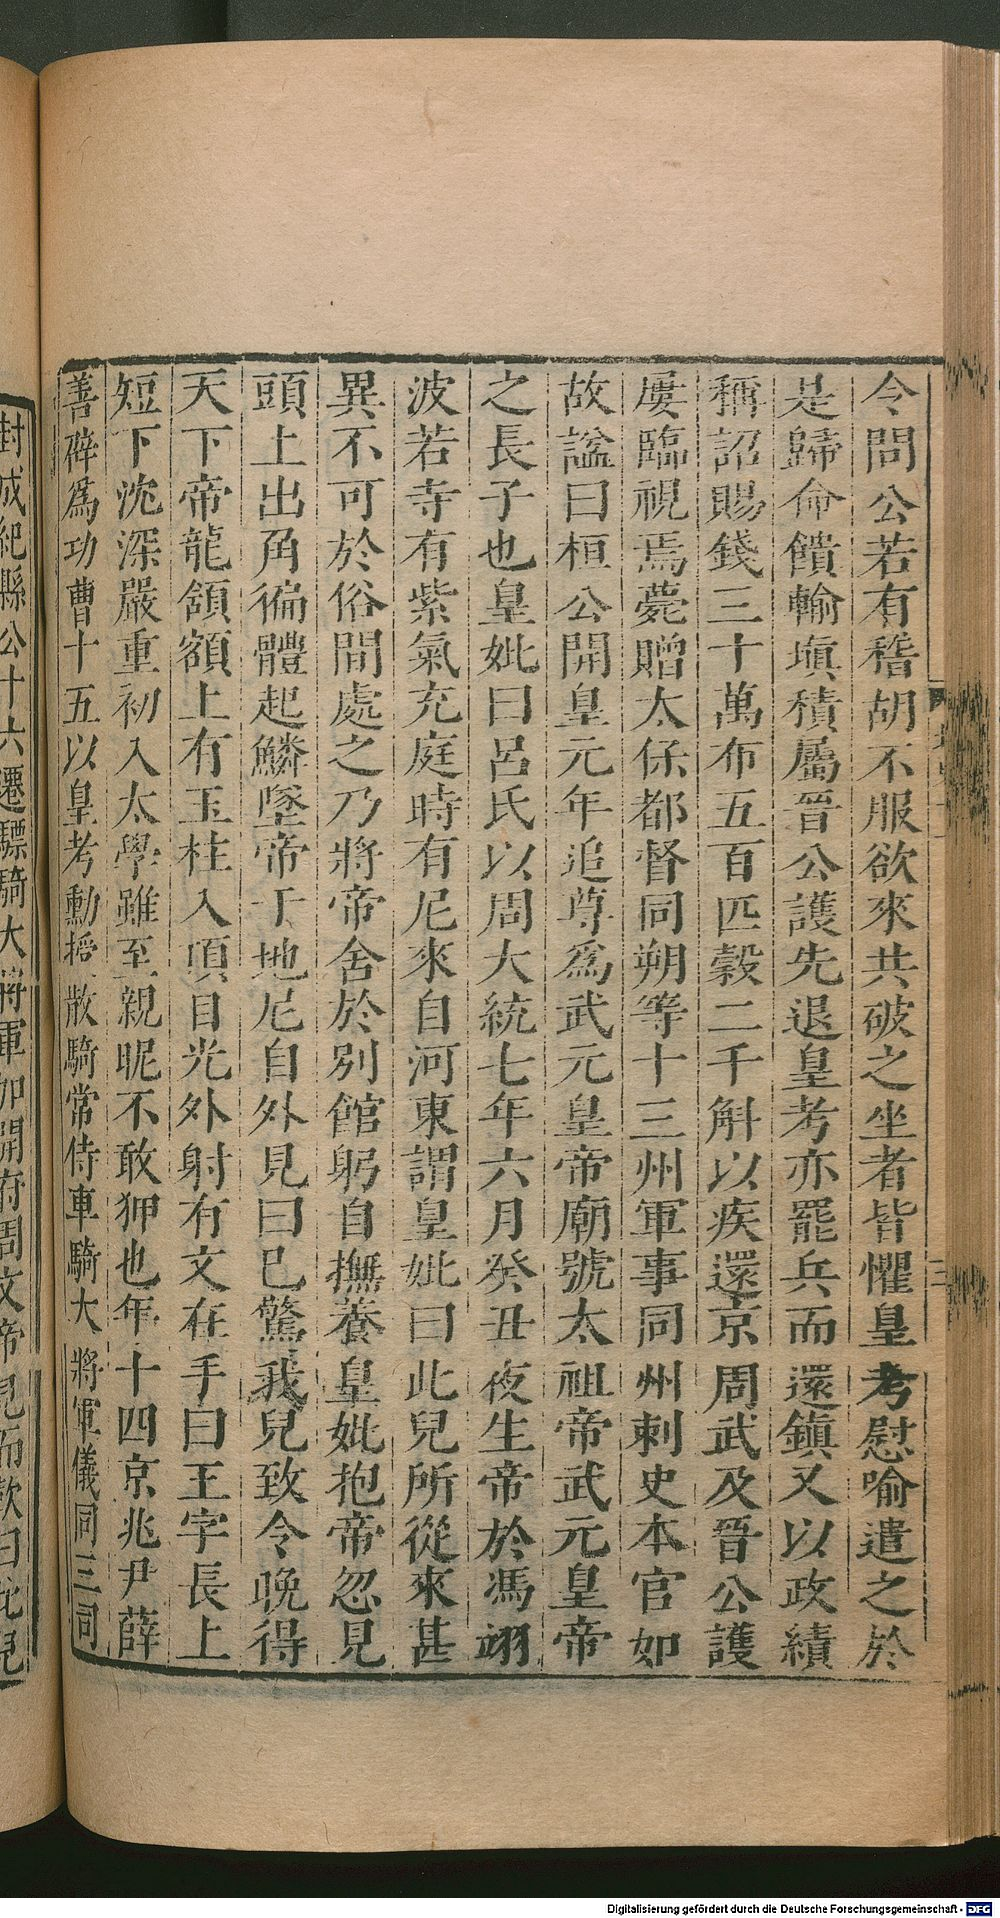 今問公若有稽胡不服欲來共破之坐者皆懼皇考慰喻遣之於
是歸命饋輸塡積屬晉公護先退皇考亦罷兵而還鎮又以政績
稱詔賜錢三十萬布五百匹穀二千斛以疾還京周武及晉公護
屢臨視焉薨贈太保都督同朔等十三州軍事同州刺史本官如
故諡曰桓公開皇元年追尊爲武元皇帝廟號太祖帝武元皇帝
之長子也皇妣曰呂氏以周大統七年六月癸丑夜生帝於馮翊
波若寺有紫氣充庭時有尼來自河東謂皇妣曰此兒所從來甚
異不可於俗間處之乃將帝舍於別館躬自撫養皇妣抱帝忽見
頭上出角徧體起鱗墜帝于地尼自外見曰已驚我兒致令晚得
天下帝龍頷額上有玉柱入項目光外射有文在手曰王字長上
短下沈深嚴重初入太學雖至親昵不敢狎也年十四京兆尹薛
善辟爲功曹十五以皇考勳授散騎常侍車騎大將軍儀同三司
封成紀縣公十六遷驃騎大將軍加開府周文帝見而歎曰此兒
Digitalisierung gefördert durch die Deutsche Forschungsgemeinschaft - DFG